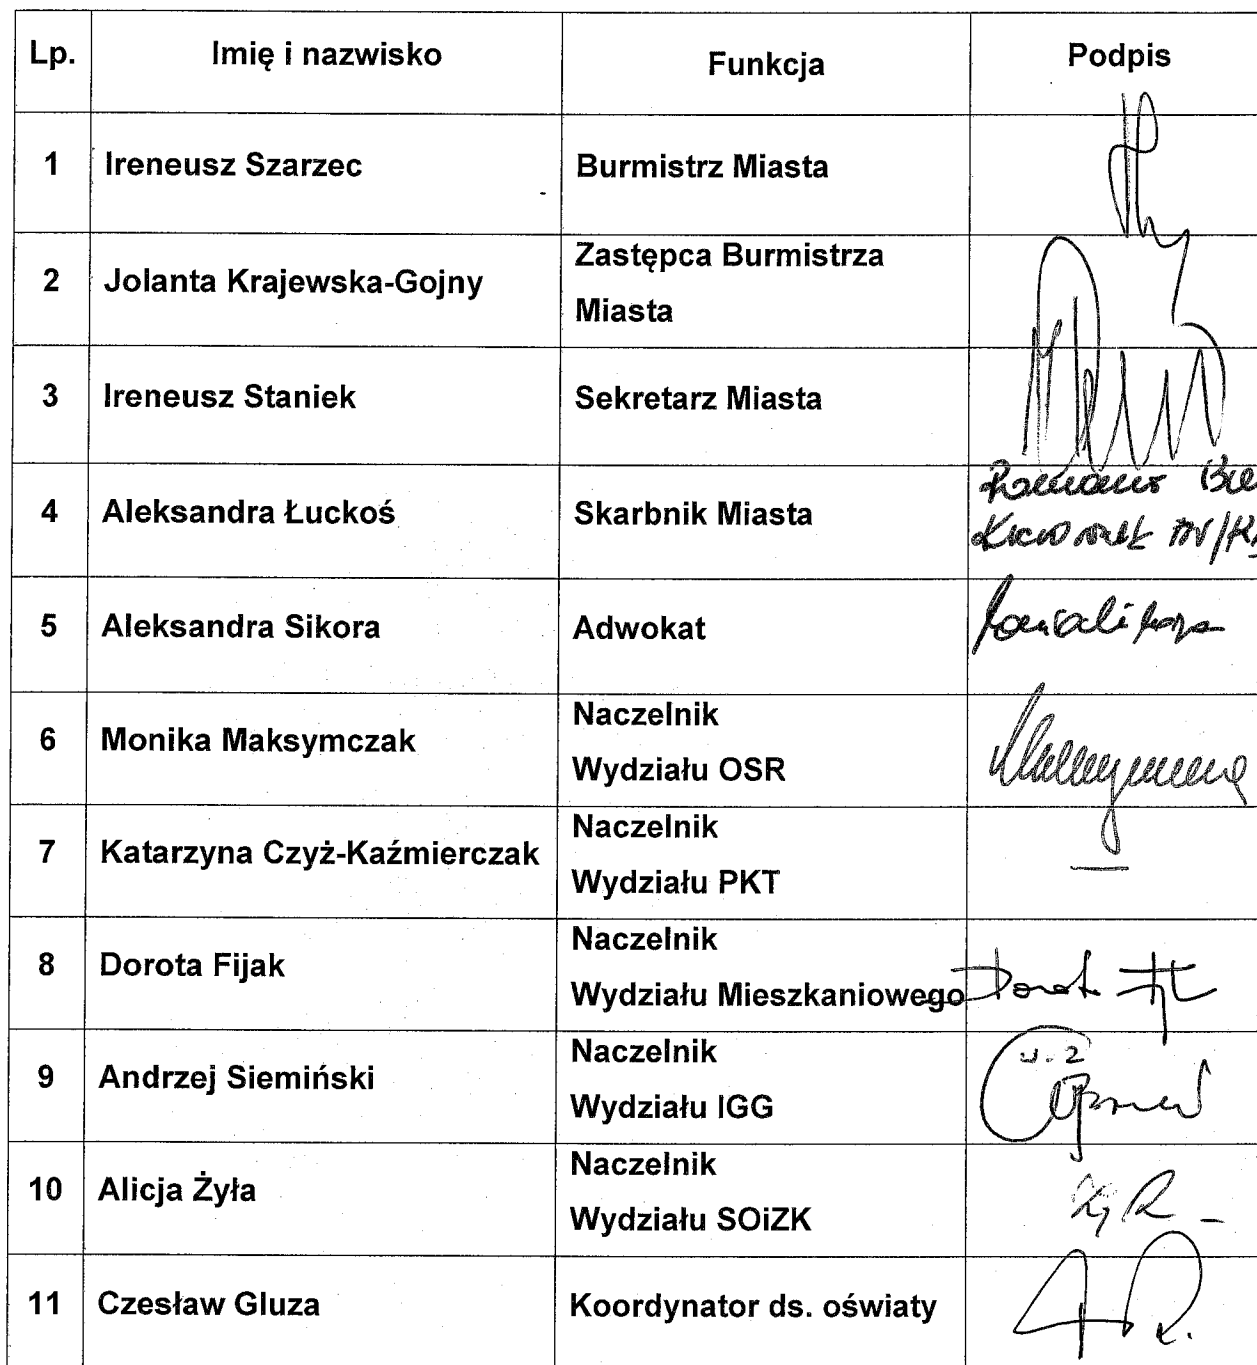 Lp. Imię i nazwisko Funkcja Podpis
1 Ireneusz Szarzec Burmistrz Miasta
2 Jolanta Krajewska-Gojny Zastępca Burmistrza
Miasta
3 Ireneusz Staniek Sekretarz Miasta
4 Aleksandra Łuckoś Skarbnik Miasta
5 Aleksandra Sikora Adwokat
6 Monika Maksymczak Naczelnik
Wydziału OSR
7 Katarzyna Czyż-Kaźmierczak Naczelnik
Wydziału PKT
—
8 Dorota Fijak Naczelnik
Wydziału Mieszkaniowego Dorota
9 Andrzej Siemiński Naczelnik
Wydziału IGG
10 Alicja Żyła Naczelnik
Wydziału SOiZK
11 Czesław Gluza Koordynator ds. oświaty